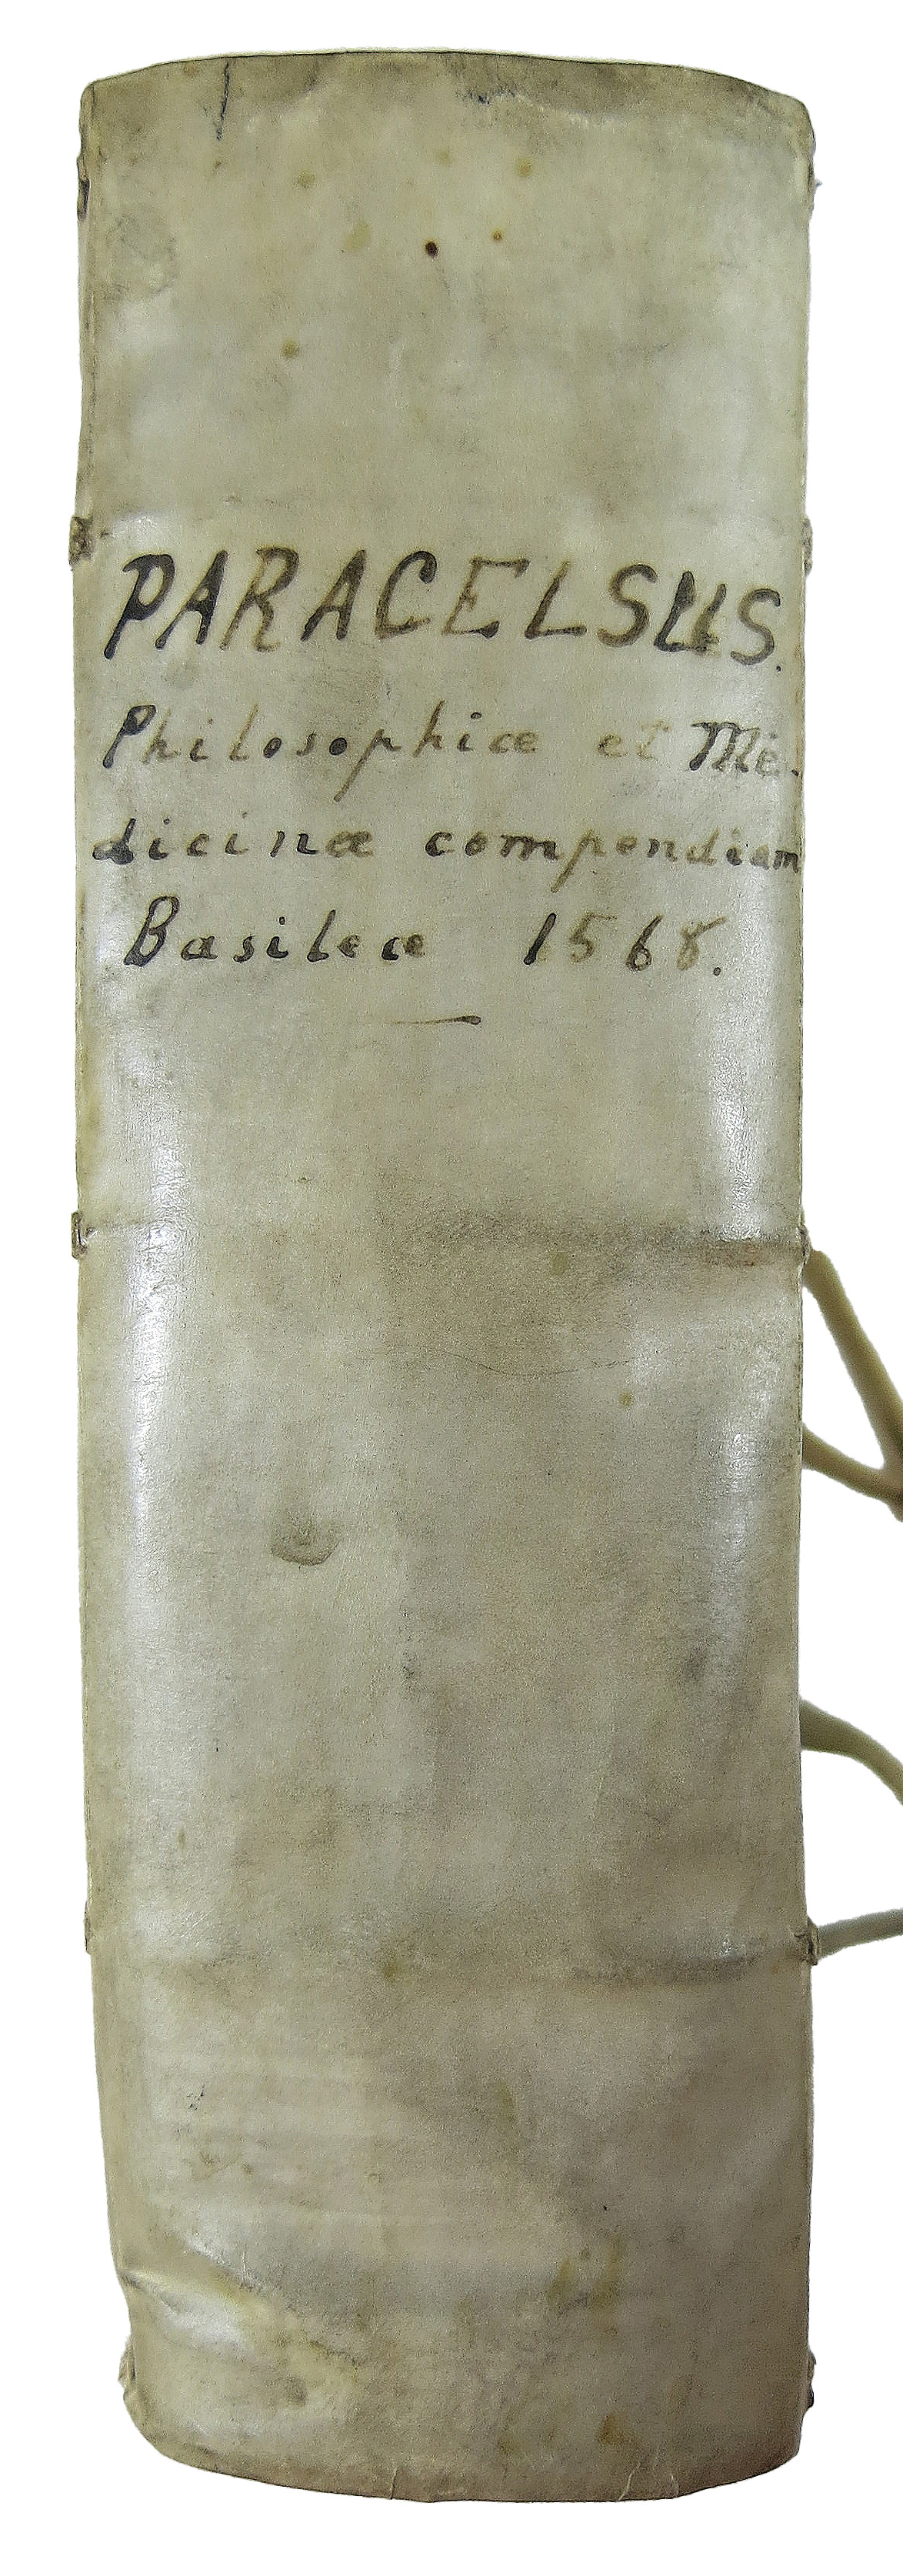 PARACELSUS.
Philosophiæ et Me-
dicinæ compendium
Basileæ 1568.